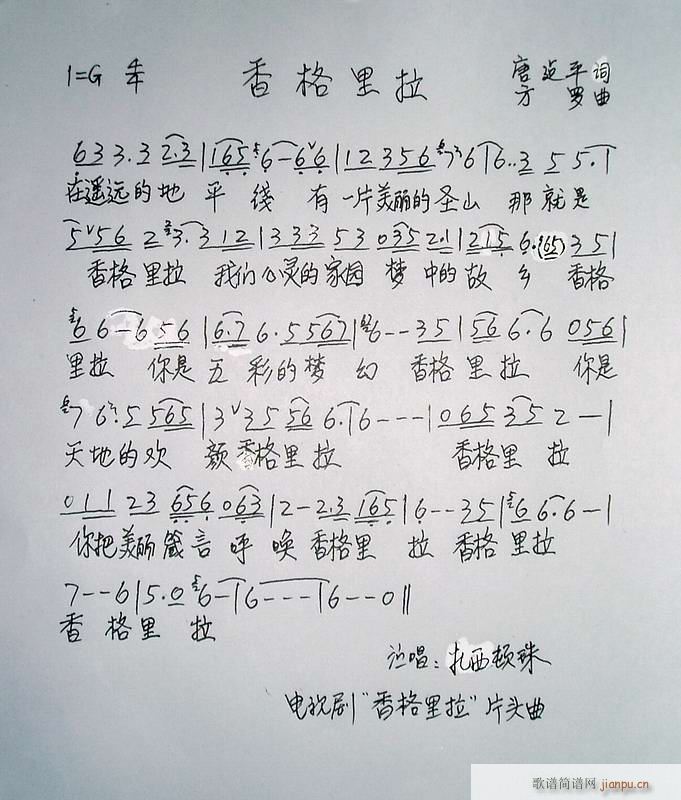 1=G 4/4 香格里拉 唐 平 词
方 罗 曲
6 3 3. 3 2. 3 | 1 6 5 6 - 6 6 | 1 2 3 5 6 7 6 | 6. . 3 5 5. 1
在遥远的地 平 线 有 一片美丽的圣山 那 就 是
5 5 6 2 3. 3 1 2 | 3 3 3 5 3 0 3 5 2. 1 | 2 1 5 6. (165) 3 5 |
香格里拉 我们心灵的家园 梦 中的 故 乡 香格
6 6 - 6 5 6 | 6. 7 6. 5 5 6 7 | 6 - - 3 5 | 5 6 6. 6 0 5 6 |
里拉 你是 五 彩的梦 幻 香格 里 拉 你是
7 6. 5 5 6 5 | 3 3 5 5 6 6. | 6 - - - | 0 6 5 3 5 2 - |
天地的欢 颜香格里 拉 香格里 拉
0 1 1 2 3 6 5 6 0 6 3 | 2 - 2. 3 1 6 5 | 6 - - 3 5 | 6 6. 6 - |
你把美丽箴言 呼 唤 香格里 拉 香格 里拉
7 - - 6 | 5. 0 6 - | 6 - - - | 6 - - 0 ‖
香 格里 拉
演唱：扎西顿珠
电视剧"香格里拉"片头曲
歌谱简谱网 jianpu.cn